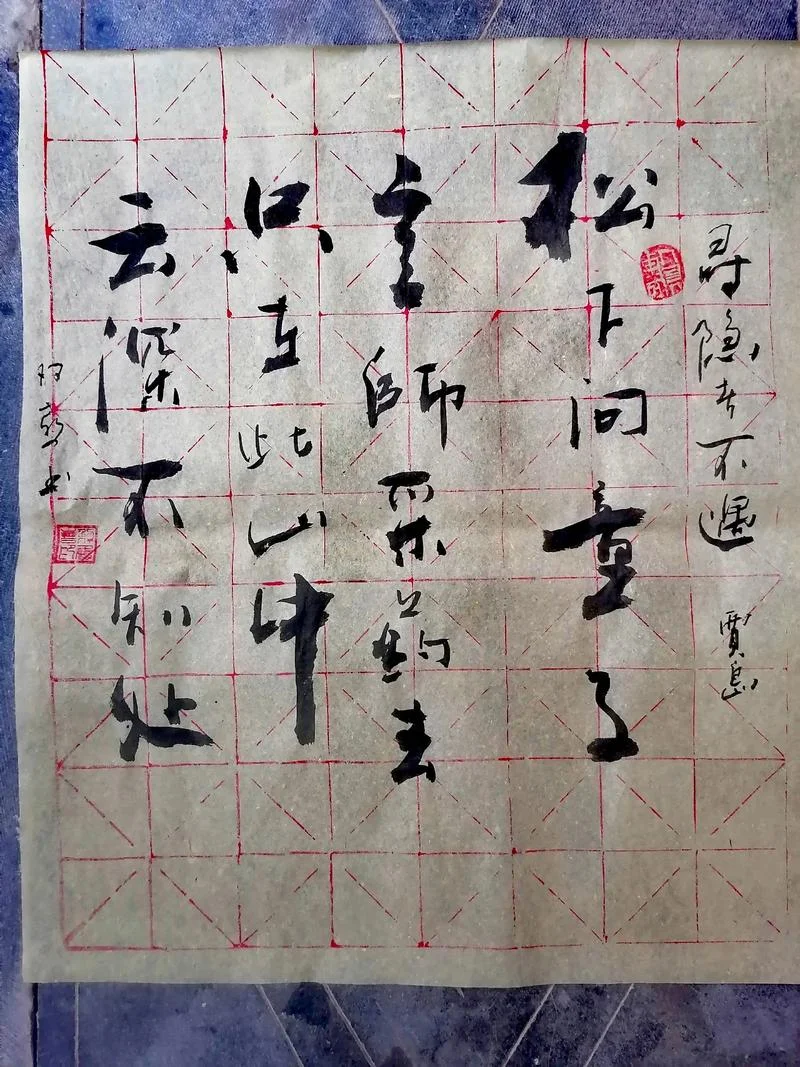 寻隐者不遇 賈島
松下问童子
言師采药去
只在此山中
云深不知处
书